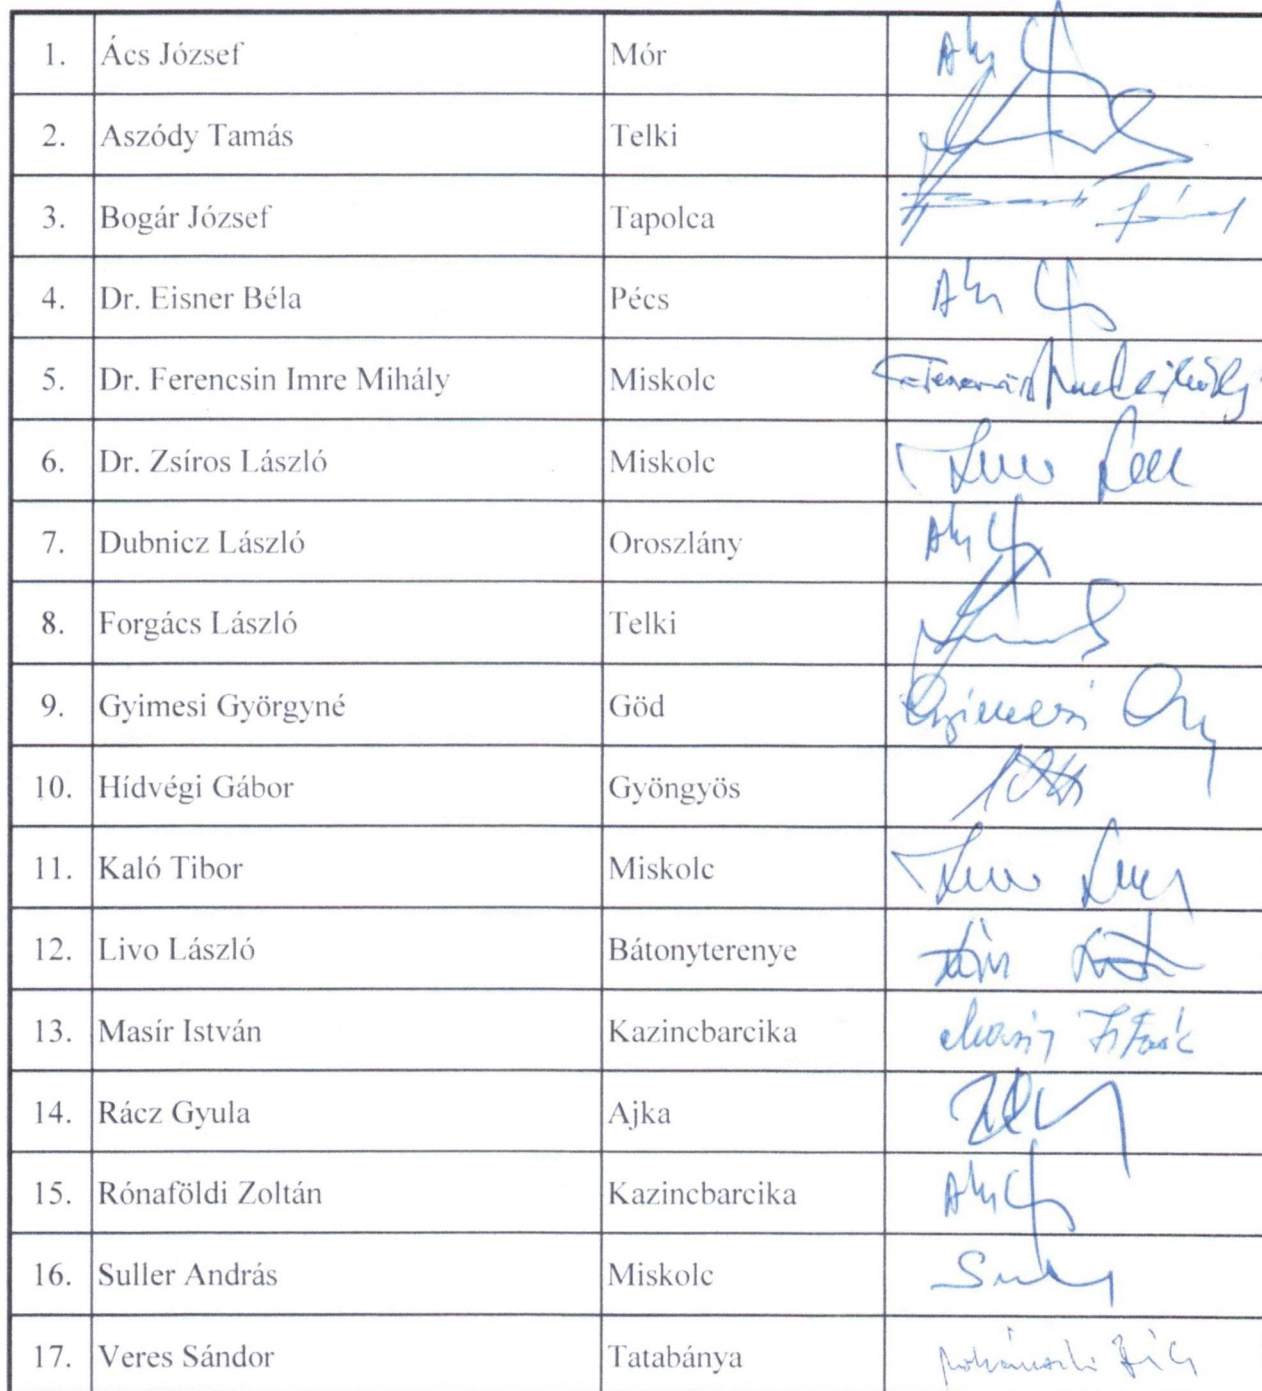 1. Ács József Mór
2. Aszódy Tamás Telki
3. Bogár József Tapolca
4. Dr. Eisner Béla Pécs
5. Dr. Ferencsin Imre Mihály Miskolc
6. Dr. Zsíros László Miskolc
7. Dubnicz László Oroszlány
8. Forgács László Telki
9. Gyimesi Györgyné Göd
10. Hídvégi Gábor Gyöngyös
11. Kaló Tibor Miskolc
12. Livo László Bátonyterenye
13. Masír István Kazincbarcika
14. Rácz Gyula Ajka
15. Rónaföldi Zoltán Kazincbarcika
16. Suller András Miskolc
17. Veres Sándor Tatabánya